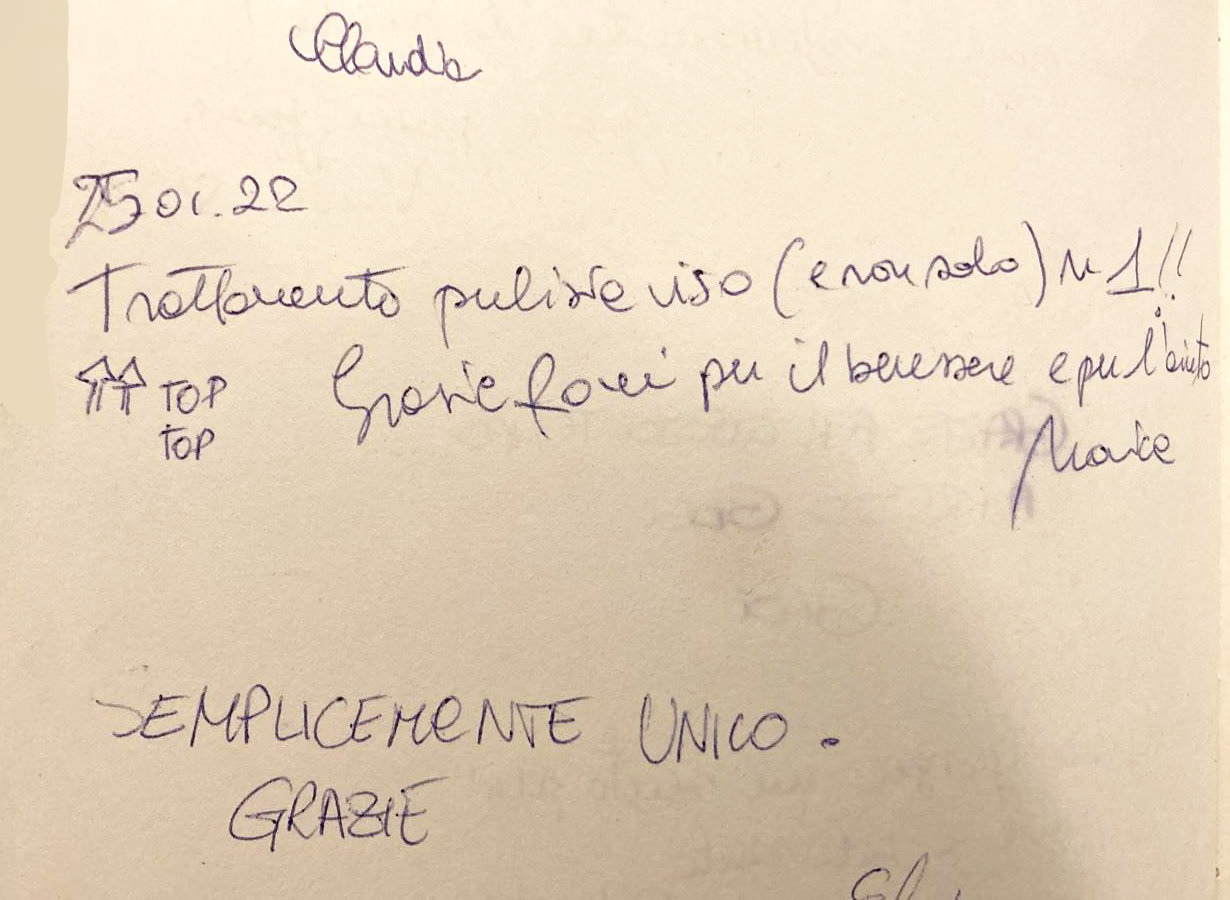 Claudia
25 01.22
Trattamento pulizia viso (e non solo) n 1!!
TOP Grazie per il benessere e per l'aiuto
TOP
SEMPLICEMENTE UNICO.
GRAZIE